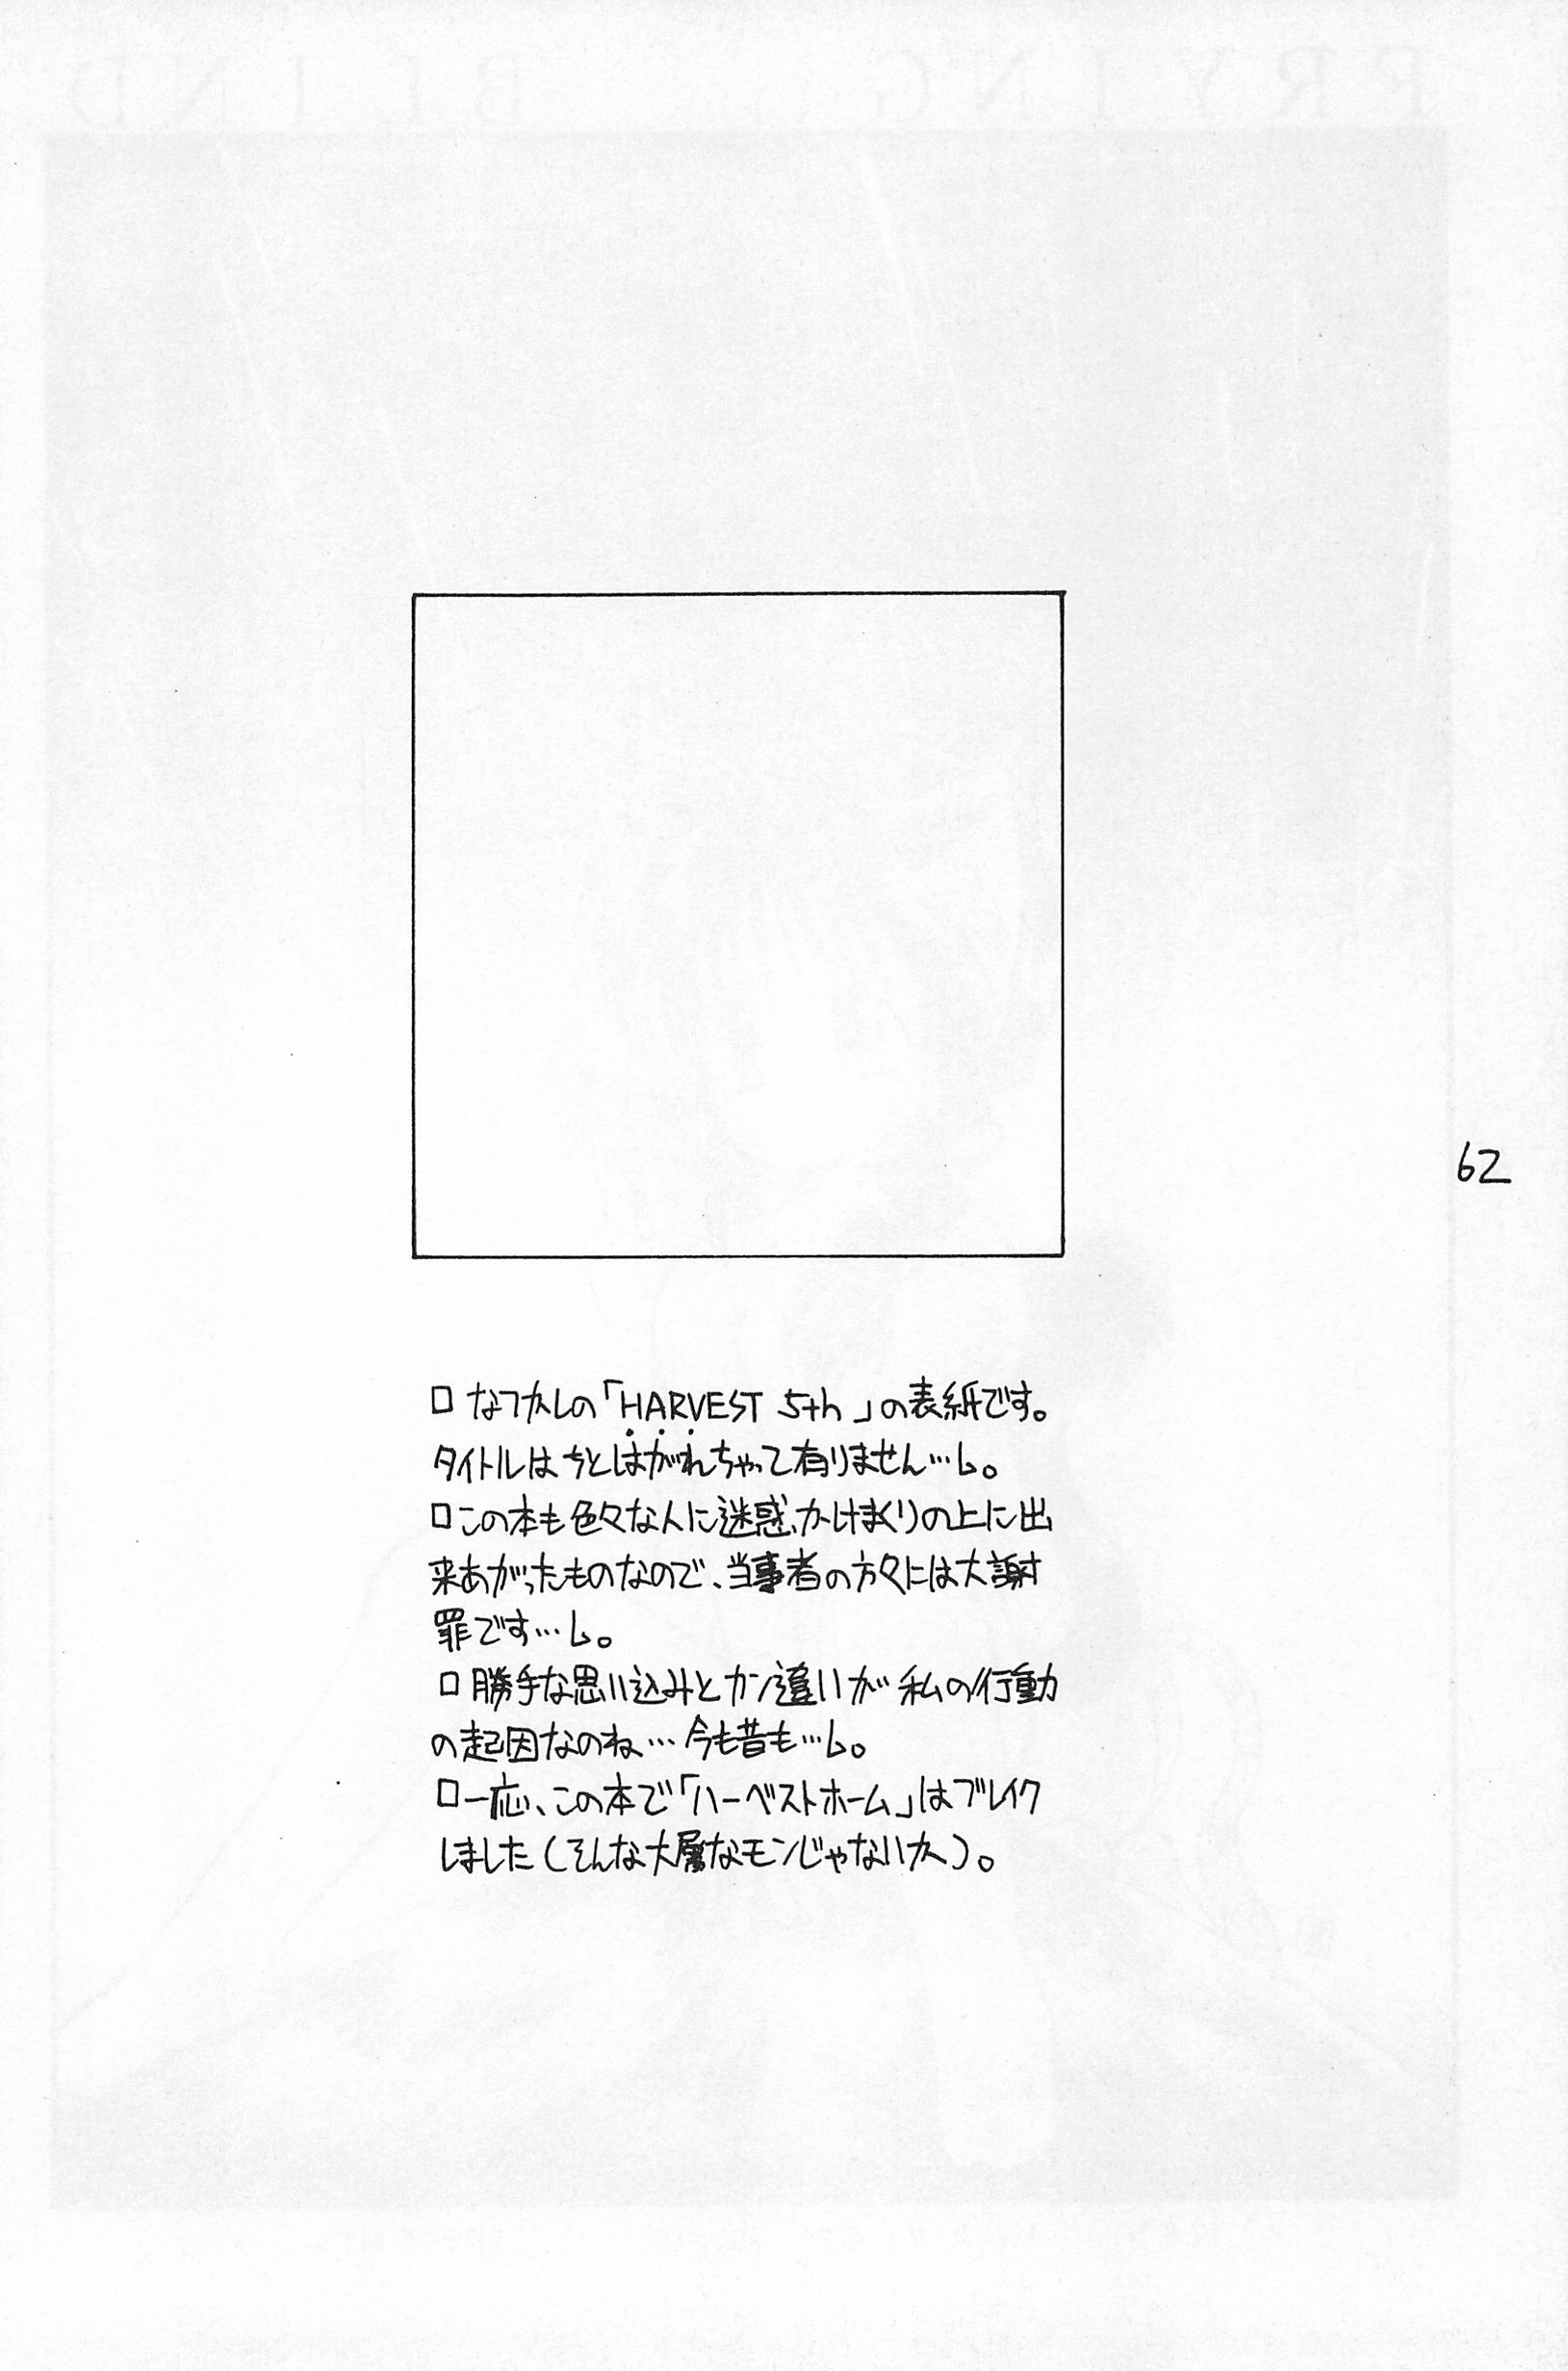 62
□なつかしの「HARVEST 5th」の表紙です。
タイトルはちとはがれちゃって有りません…し。
□この本も色々な人に迷惑、かけまくりの上に出
来あがったものなので、当事者の方々には大謝
罪です…し。
□勝手な思い込みとカン違いが私の行動
の起因なのね…今も昔も…し。
□一応、この本で「ハーベストホーム」はブレイク
しました(そんな大層なモンじゃないか)。